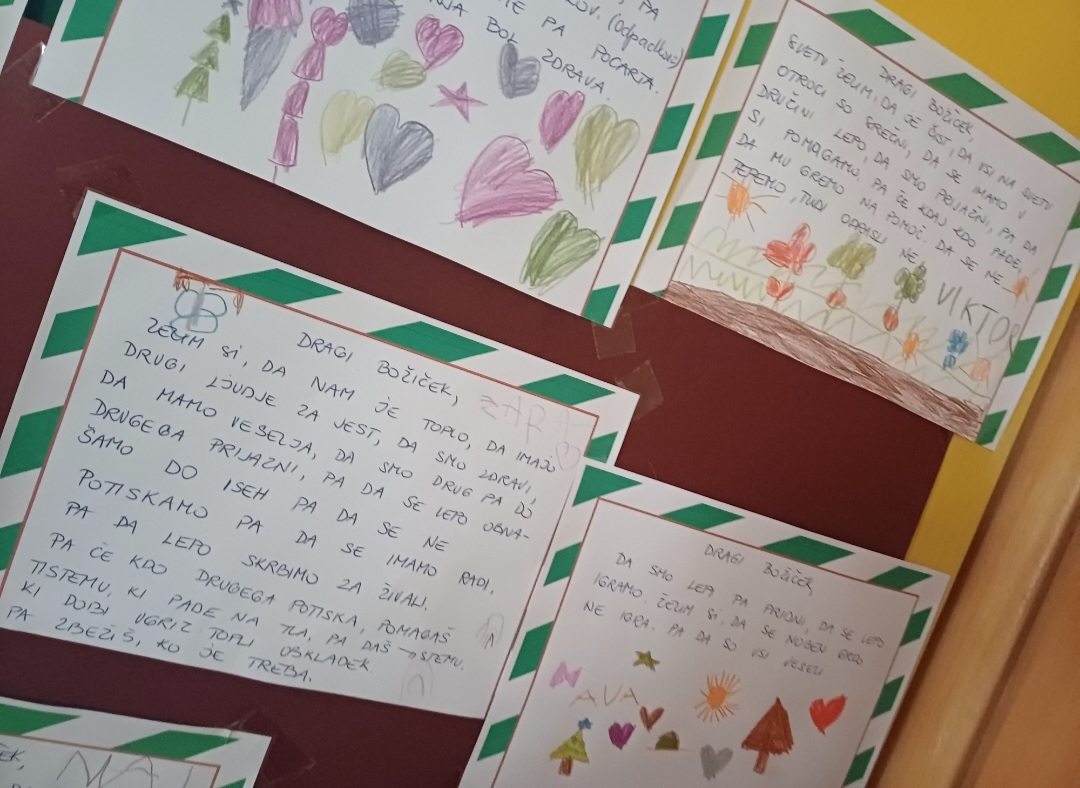 PA
OV. (odpadkov)
ME PA POČARTA.
NJA BOL ZDRAVA.
DRAGI BOŽIČEK,
SVETU ŽELIM, DA JE ČIST, DA VSI NA SVETU
OTROCI SO SREČNI, DA SE IMAMO V
DRUŽINI LEPO, DA SMO PRIJAZNI, PA DA
SI POMAGAMO, PA ČE KDAJ KDO PADE,
DA MU GREMO NA POMOČ. DA SE NE
TEPEMO, TUDI ODRASLI NE.
VIKTOR
DRAGI BOŽIČEK,
ŽELIM SI, DA NAM JE TOPLO, DA IMAJO
DRUGI LJUDJE ZA JEST, DA SMO ZDRAVI,
DA MAMO VESELJA, DA SMO DRUG PA DO
DRUGEGA PRIJAZNI, PA DA SE LEPO OBNA-
ŠAMO DO VSEH PA DA SE NE
POTISKAMO PA DA SE IMAMO RADI,
PA DA LEPO SKRBIMO ZA ŽIVALI.
PA ČE KDO DRUGEGA POTISKA, POMAGAŠ
TISTEMU, KI PADE NA TLA, PA DAŠ TISTEMU,
KI DOBI UGRIZ TOPLI OBKLADEK
PA ZBEŽIŠ, KO JE TREBA.
DRAGI BOŽIČEK
DA SMO LEPI PA PRIDNI, DA SE LEPO
IGRAMO. ŽELIM SI, DA SE NOBEN GRDO
NE IGRA. PA DA SO VSI VESELI
AVA
ČEK,